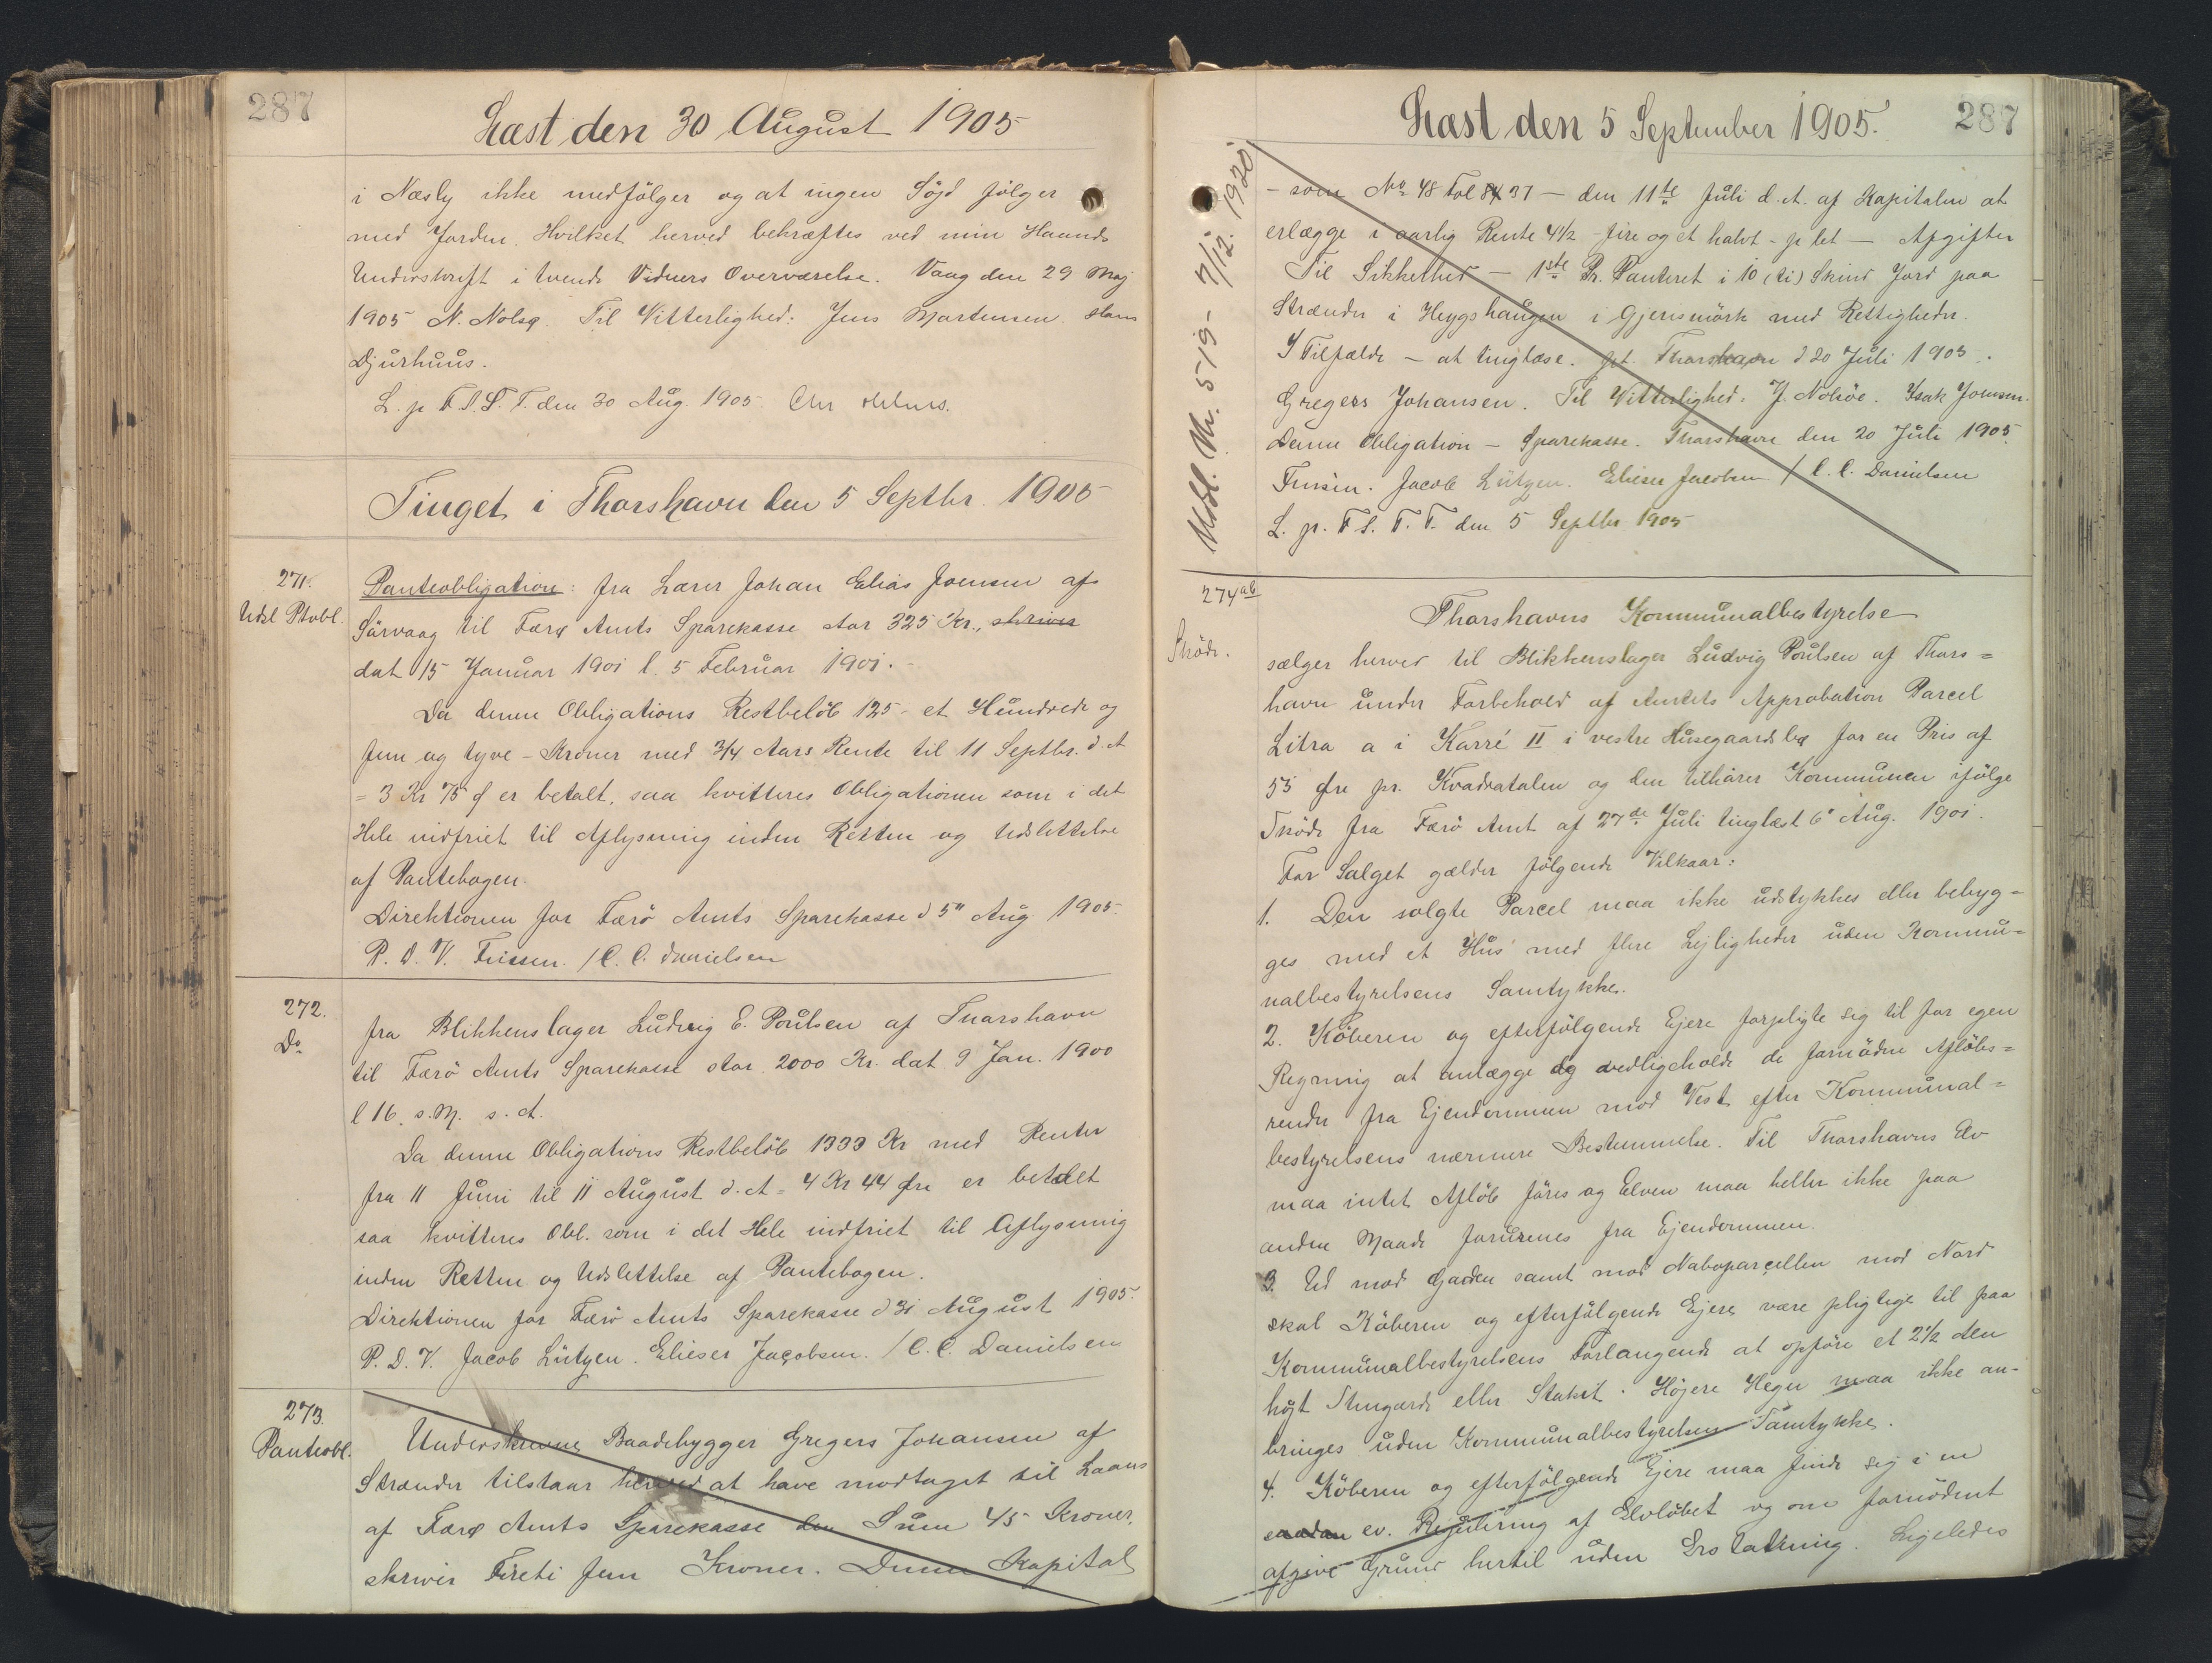 287
Læst den 30 August 1905
i Næsly ikke medfölger og at ingen Söjd fölger
med Jorden. Hvilket herved bekræftes ved min Haands
Underskrift i tvende Vidners Overværelse. Vaag den 29 Maj
1905 N. Nolsø. Til Vitterlighed: Jens Mortensen. Hans
Djurhuus.
L. p F. S. T. den 30 Aug. 1905. Chr
Tinget i Thorshavn den 5 Septbr. 1905
271.
Udsl Ptobl.
Panteobligation: fra Lærer Johan Elias Joensen af
Sörvaag til Færø Amts Sparekasse stor 325 Kr., skriver
dat 15 Januar 1901 l. 5 Februar 1901.
Da denne Obligations Restbelöb 125 - et Hundrede og
fem og tyve - Kroner med 3/4 Aars Rente til 11 Septbr. d. A
= 3 Kr 75 Ø er betalt, saa kvitteres Obligationen som i det
Hele indfriet til Aflysning inden Retten og Udslettelse
af Pantebogen.
Direktionen for Færö Amts Sparekasse d 5" Aug 1905.
P. D. V. Finsen. / C. C. Danielsen
272.
Do
fra Blikkenslager Ludvig E. Poulsen af Thorshavn
til Færö Amts Sparekasse stor 2000 Kr. dat 9 Jan. 1900
l 16. s. M. s. A.
Da denne Obligations Restbelöb 1333 Kr med Renter
fra 11 Juni til 11 August d. A = 4 Kr 44 Øre er betalet
saa kvitteres Obl. som i det Hele indfriet til Aflysning
inden Retten og Udslettelse af Pantebogen.
Direktionen for Færö Amts Sparekasse d 31 August 1905.
P. D. V. Jacob Lützen. Elieser Jacobsen. / C. C. Danielsen
273.
Panteobl.
Underskrevne Baadebygger Gregers Johansen af
Strænder tilstaar herved at have modtaget til Laans
af Færø Amts Sparekasse den Sum 45 Kroner,
skriver Fireti fem Kroner. Denne Kapital
Læst den 5 September 1905.
287
Udsl. Nr. 519 - 7/12. 1920
- som No 48 Fol 37 - den 11te Juli d. A. af Kapitalen at
erlægge i aarlig Rente 4½ - fire og et halvt - p Ct - Afgifter
Til Sikkerhed - 1ste Pr. Panteret i 10 (ti) Skind Jord paa
Strænder i Heygshaugen i Gjerismörk med Rettigheder.
I Tilfælde - at tinglæse. pt. Thorshavn d 20 Juli 1905.
Gregers Johansen. Til Vitterlighed: J. Nolsöe. Isak Joensen.
Denne Obligation - Sparekasse. Thorshavn den 20 Juli 1905
Finsen. Jacob Lützen. Elieser Jacobsen / C. C. Danielsen
L. p. F S. T. T. den 5 Septbr 1905
274ab
Sköde.
Thorshavns Kommunalbestyrelse
sælger herved til Blikkenslager Ludvig Poulsen af Thors=
havn under Forbehold af Amtets Approbation Parcel
Litra a i Karré II i vestre Husegaardsbø for en Pris af
55 Øre pr. Kvadratalen og den tilhörer Kommunen ifölge
Sköde fra Færö Amt af 27de Juli tinglæst 6' Aug. 1901.
For Salget gælder fölgende Vilkaar:
1. Den solgte Parcel maa ikke udstykkes eller bebyg=
ges med et Hus med flere Lejligheder uden Kommu=
nalbestyrelsens Samtykke.
2. Köberen og efterfölgende Ejere forpligte sig til for egen
Regning at anlægge og vedligeholde de fornödne Aflöbs=
render fra Ejendommen mod Vest efter Kommunal=
bestyrelsens nærmere Bestemmelse. Til Thorshavns Elv
maa intet Aflöb föres og Elven maa heller ikke paa
anden Maade forurenes fra Ejendommen.
3. Ud mod Gaden samt mod Naboparcellen mod Nord
skal Köberen og efterfölgende Ejere være pligtige til paa
Kommunalbestyrelsens Forlangende at opföre et 2½ Alen
höjt Stengærde eller Stakit. Höjere Hegn maa ikke an-
bringes uden Kommunalbestyrelsens Samtykke.
4. Köberen og efterfölgende Ejere maa finde sig i en
saadan ev. Regulering af Elvlöbet og om fornödent
afgive Grund hertil uden Erstatning. Ligeledes